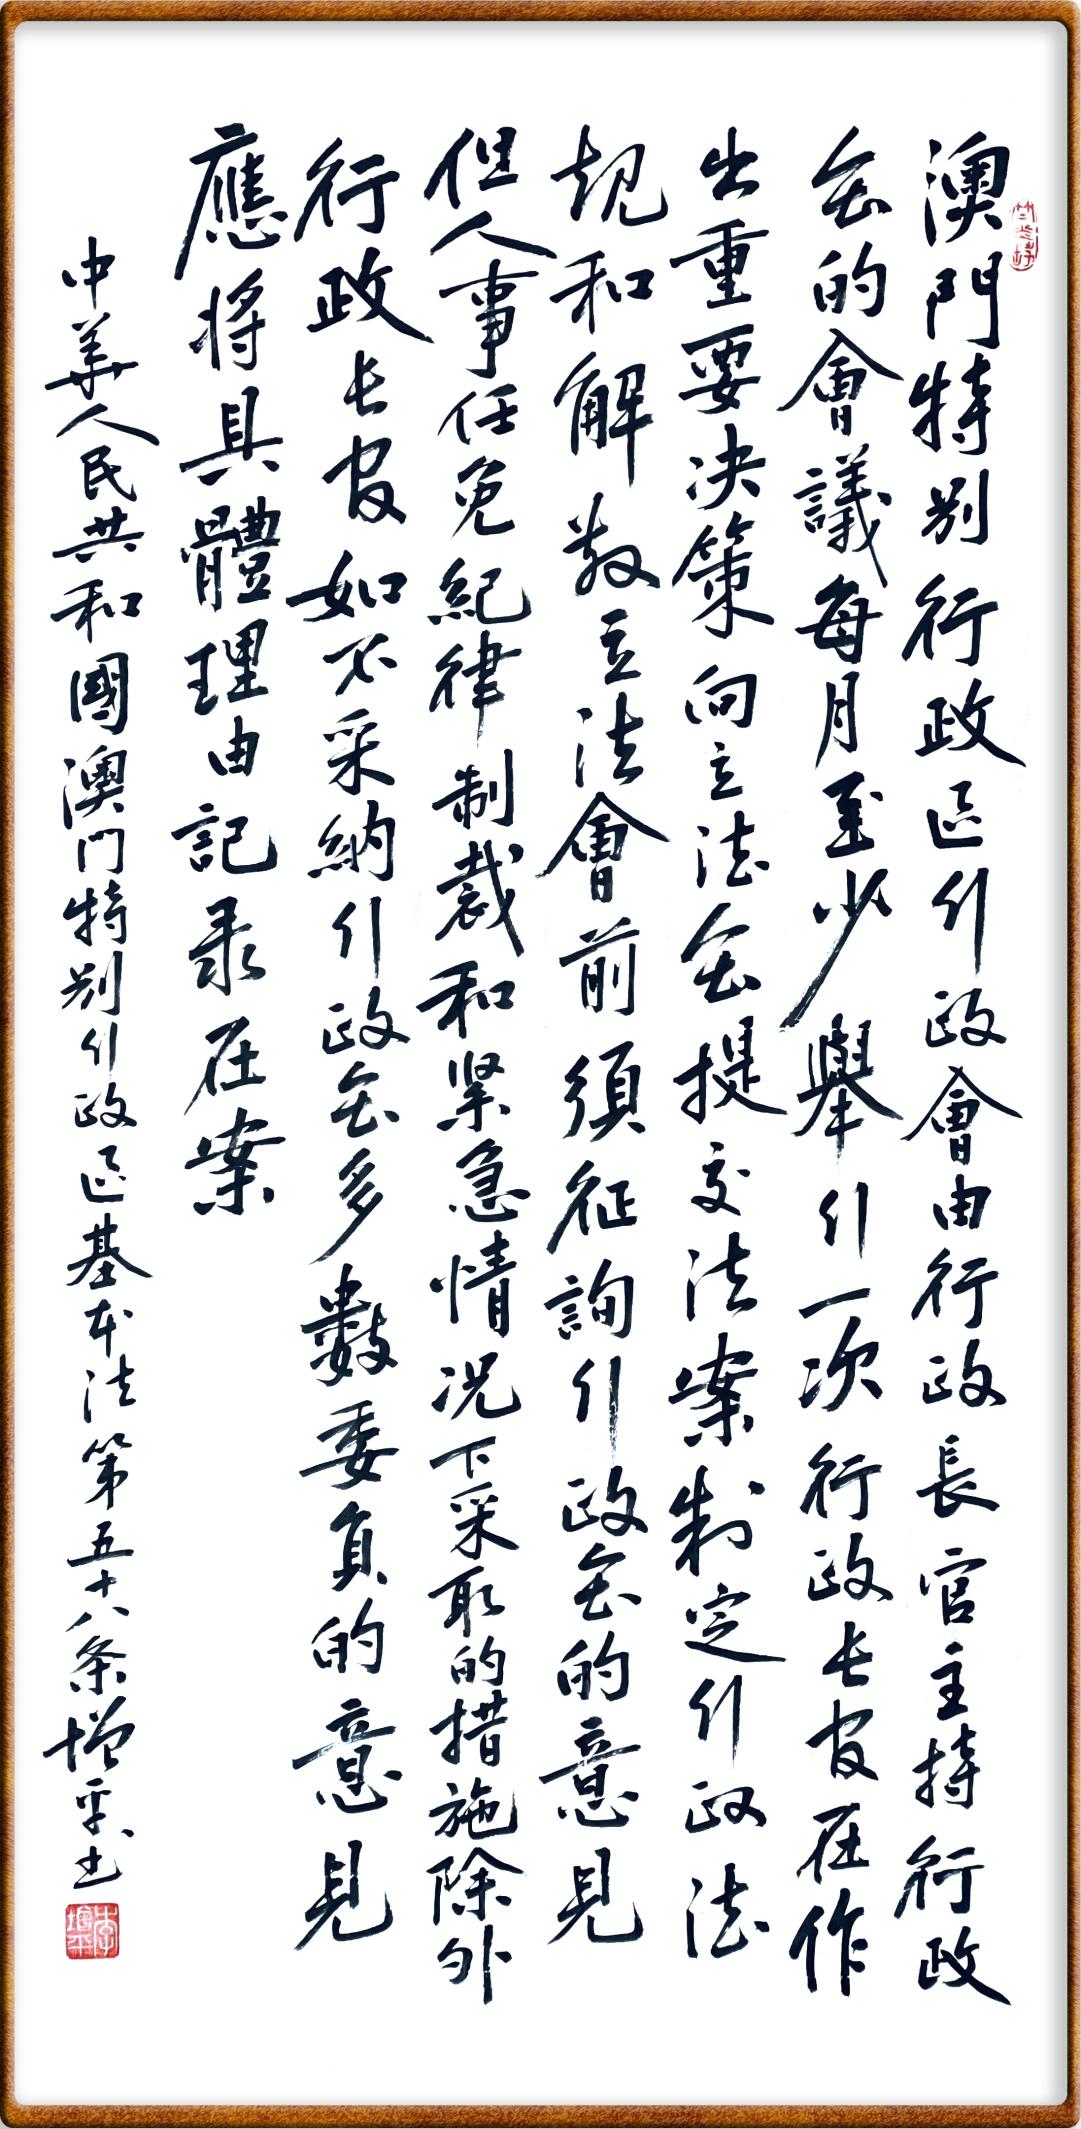 澳門特别行政区行政會由行政長官主持行政
会的會議每月至少舉行一次行政长官在作
出重要决策向立法会提交法案制定行政法
規和解散立法會前須征詢行政会的意見
但人事任免紀律制裁和紧急情况下采取的措施除外
行政长官如不采納行政会多數委員的意見
應将具體理由記录在案
中華人民共和國澳门特别行政区基本法第五十八条增平书